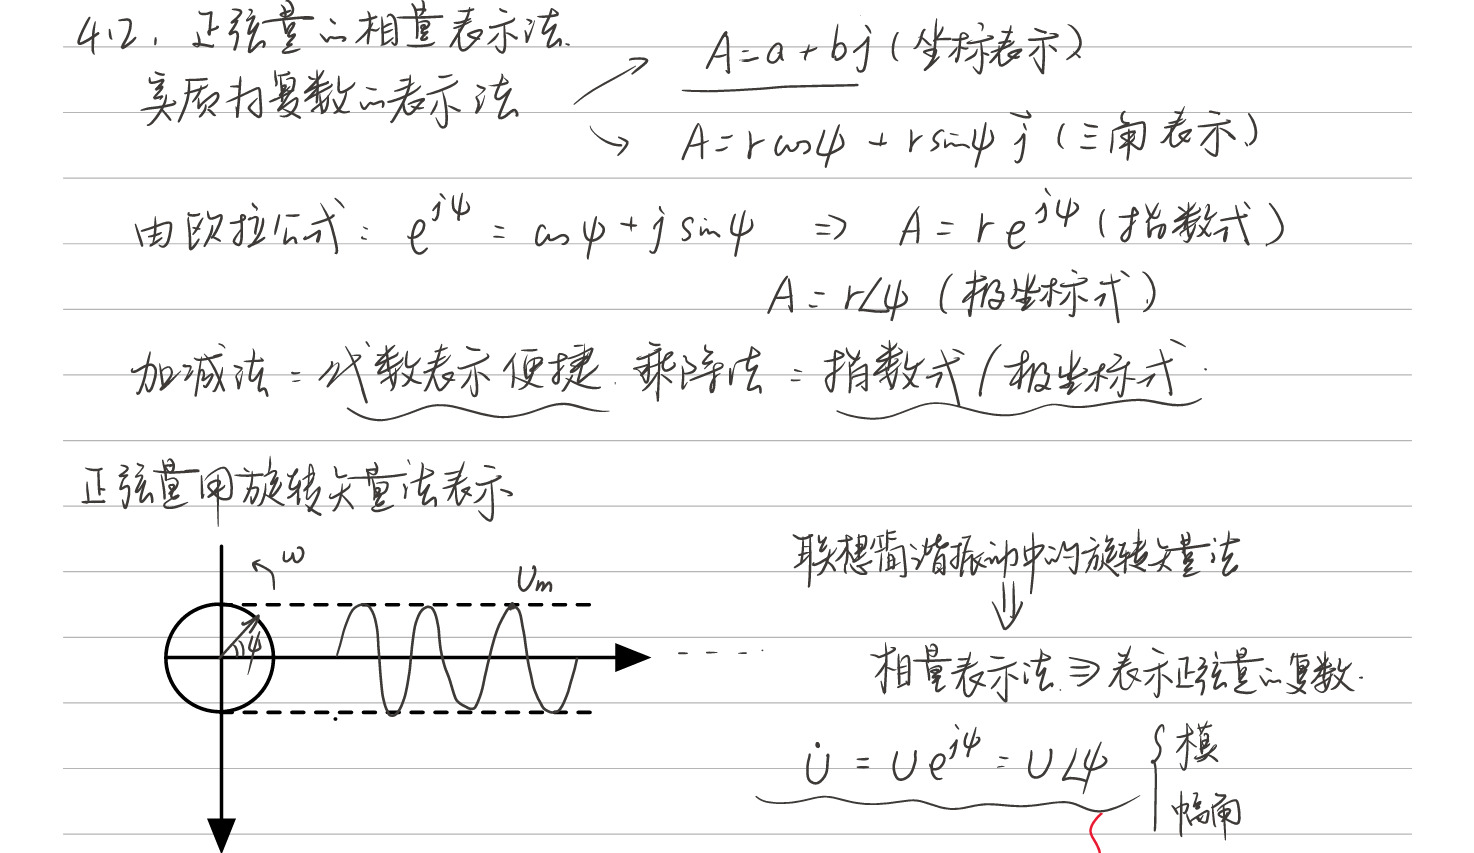 4.2. 正弦量的相量表示法.
实质为复数的表示法
A=a+bj(坐标表示)
A=rcosψ+rsinψ j(三角表示)
由欧拉公式: e^{jψ} = cosψ+j sinψ ⇒ A = r e^{jψ}(指数式)
A = r∠ψ (极坐标式)
加减法=代数表示便捷. 乘除法=指数式/极坐标式.
正弦量用旋转矢量法表示
ω
Um
ψ
联想简谐振动中的旋转矢量法
⇓
相量表示法⇒表示正弦量的复数.
U̇ = U e^{jψ} = U∠ψ { 模
幅角